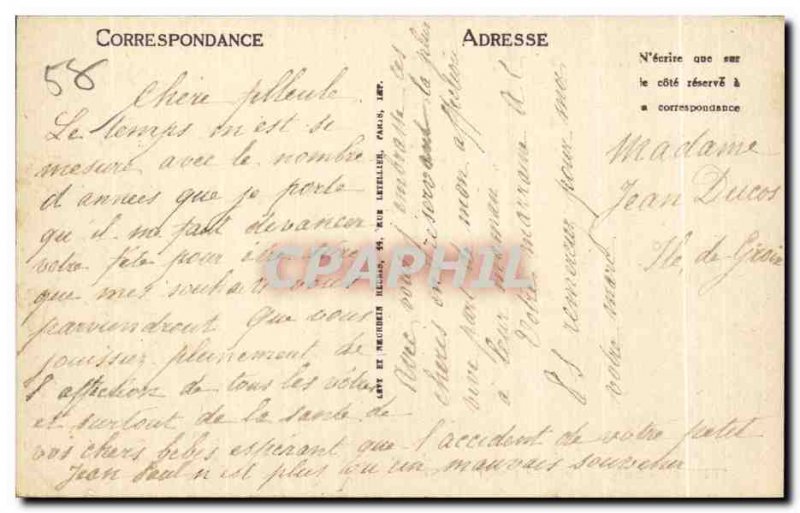 CORRESPONDANCE
ADRESSE
N'écrire que sur
le côté réservé à
a correspondance
58
Chère filleule
Le temps m'est si
mesuré avec le nombre
d'années que je porte
qu'il me faut devancer
votre fête pour
que mes souhaits vous
parviendront que vous
jouissiez pleinement de
l'affection de tous les vôtres
et surtout de la santé de
vos chers bébés espérant que l'accident de votre petit
Jean Paul n'est plus qu'un mauvais souvenir
Avec vous j'embrasse ces
chéris en réservant la plus
vive part de mon affection
à leur maman
Votre marraine
PS remerciez pour moi
votre mari
Madame
Jean Ducos
Ile de Groix
LÉVY ET NEURDEIN RÉUNIS, 44, RUE LETELLIER, PARIS, IMP.
CPAPHIL